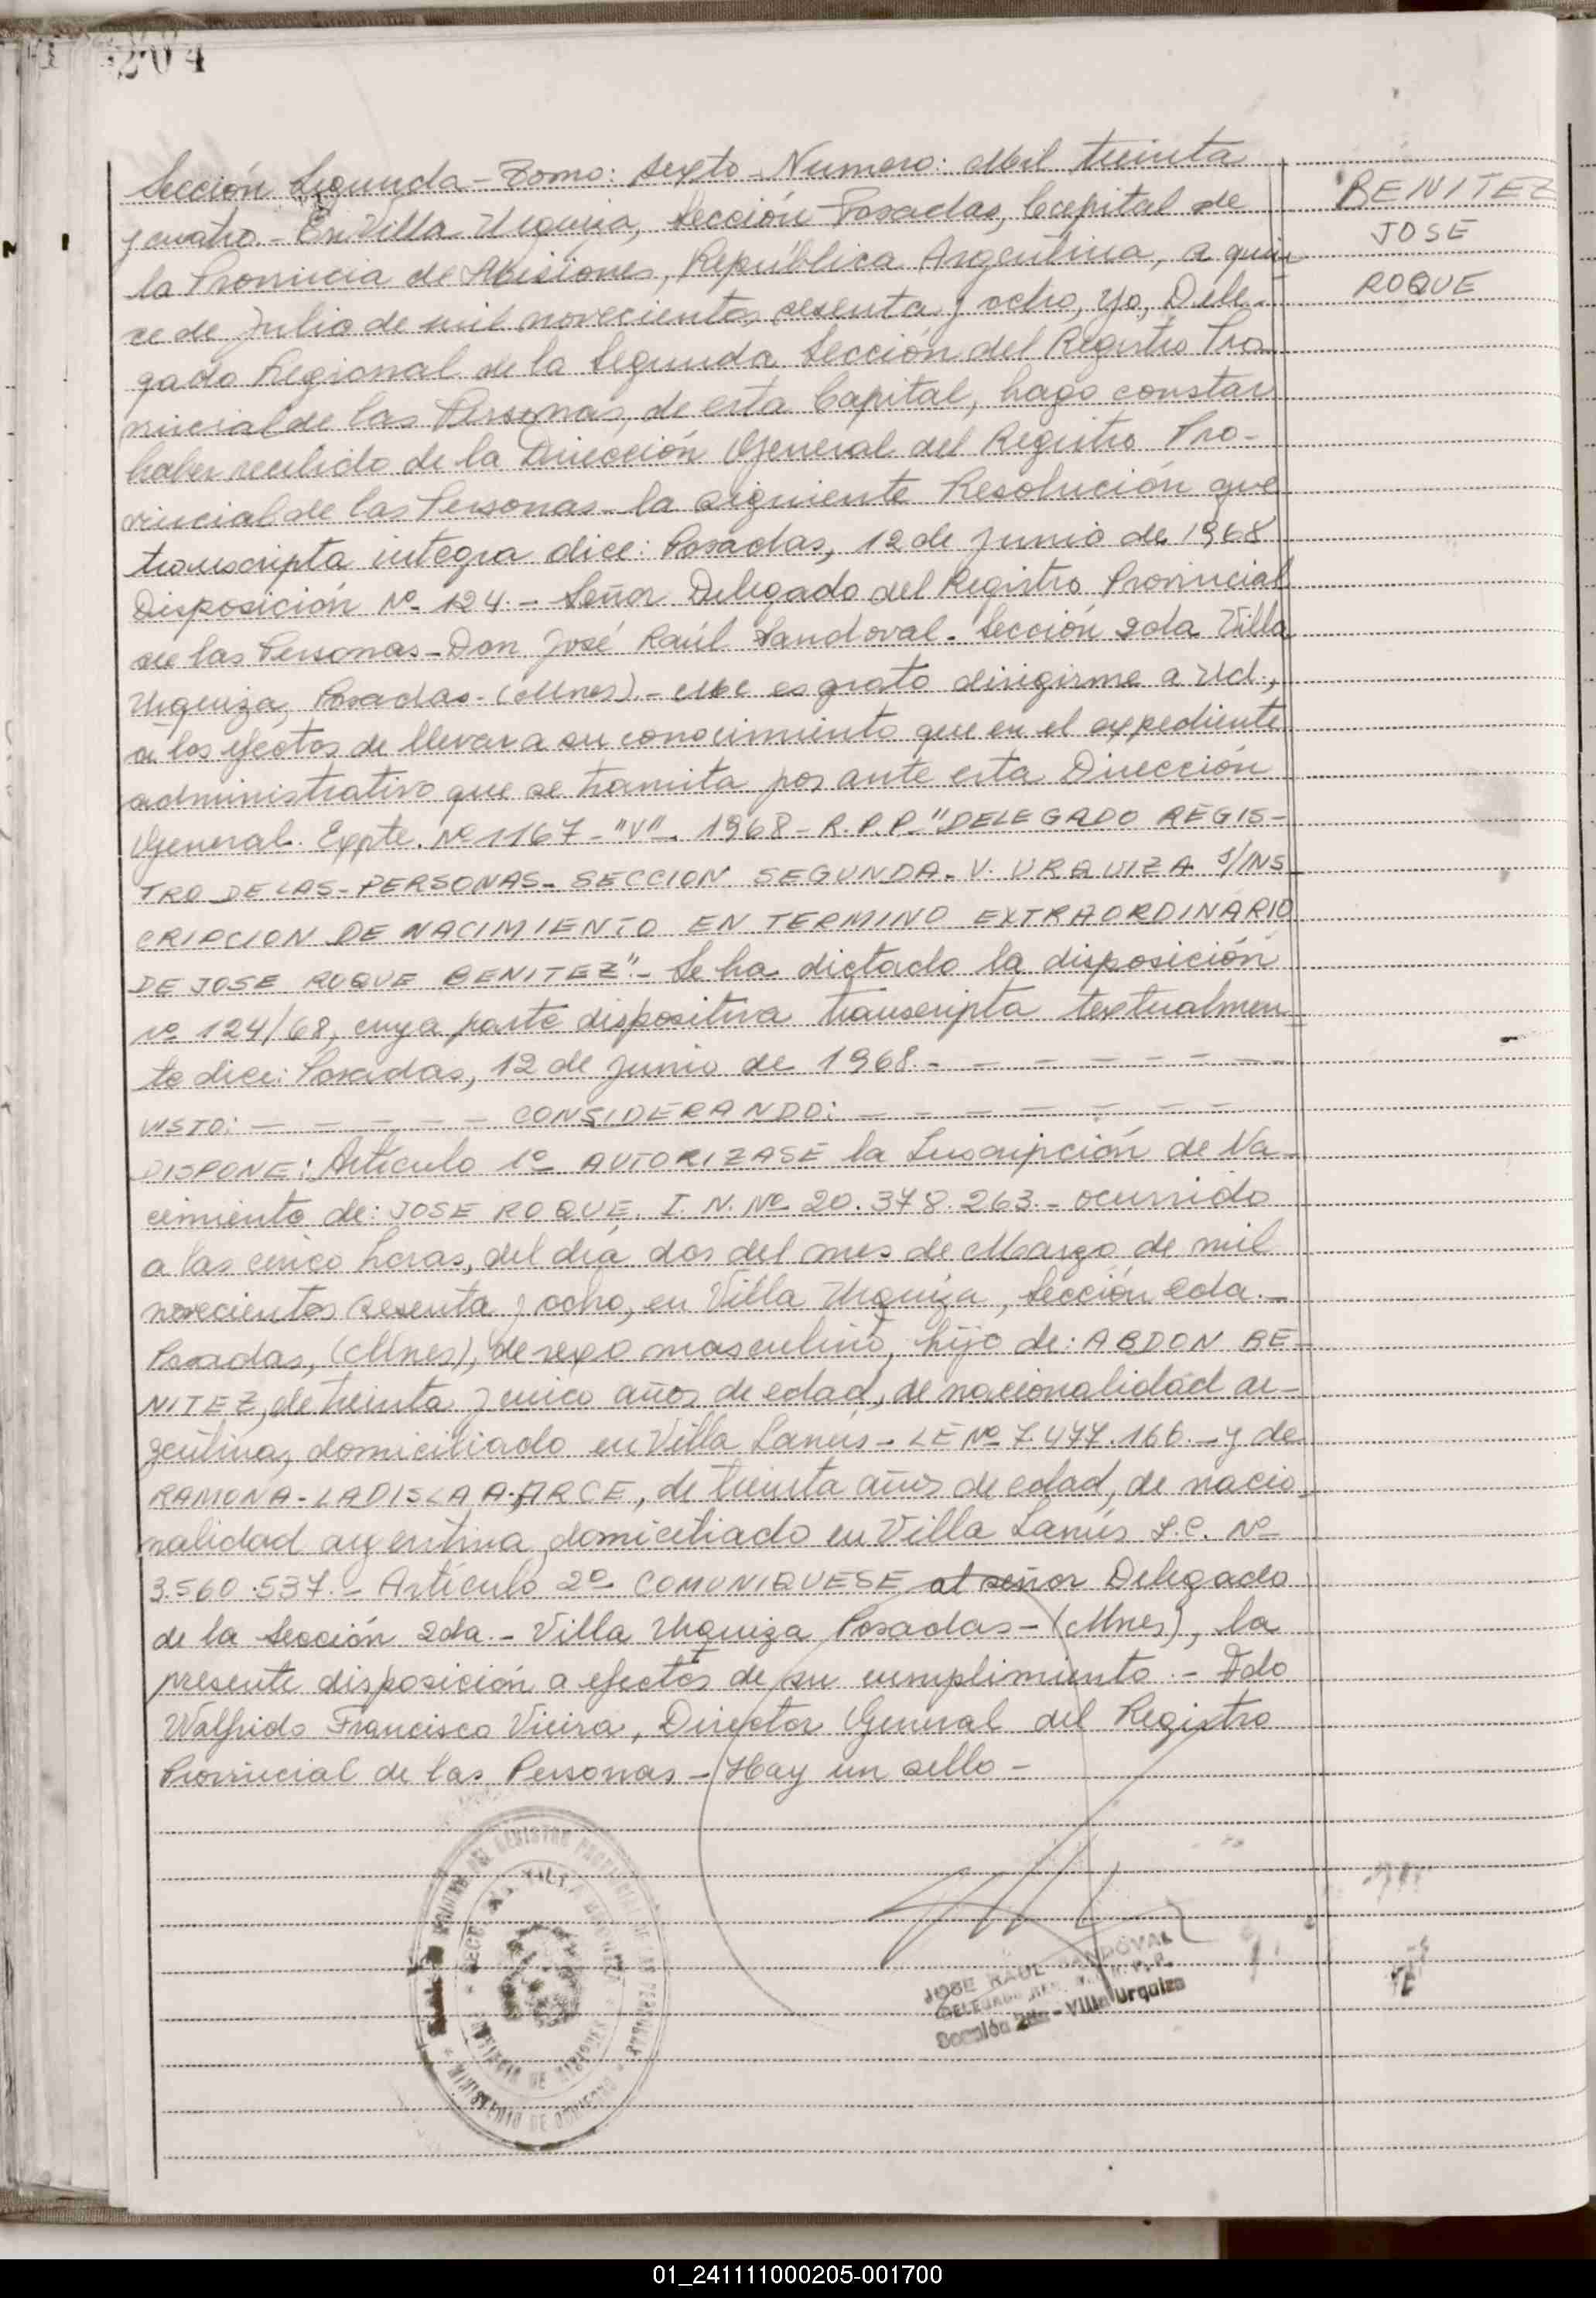 204
Sección Segunda - Tomo: sexto - Numero: Mil treinta
y cuatro - En Villa Urquiza, Sección Posadas, Capital de
la Provincia de Misiones, República Argentina, a quin
ce de Julio de mil novecientos sesenta y ocho, yo, Dele-
gado Regional de la Segunda Sección del Registro Pro
vincial de las Personas, de esta Capital, hago constar
haber recibido de la Dirección General del Registro Pro-
vincial de las Personas - la siguiente Resolución que
transcripta integra dice: Posadas, 12 de Junio de 1968
Disposición Nº 124. - Señor Delegado del Registro Provincial
de las Personas - Don José Raúl Sandoval - Sección 2da Villa
Urquiza, Posadas - (Mnes) - Me es grato dirigirme a Ud.,
a los efectos de llevar a su conocimiento que en el expediente
administrativo que se tramita por ante esta Dirección
General. Expte. Nº 1167 - "V" - 1968 - R.P.P. "DELEGADO REGIS-
TRO DE LAS - PERSONAS - SECCION SEGUNDA - V. URQUIZA S/INS
CRIPCION DE NACIMIENTO EN TERMINO EXTRAORDINARIO
DE JOSE ROQUE BENITEZ" - Se ha dictado la disposición
Nº 124/68, cuya parte dispositiva transcripta textualmen
te dice: Posadas, 12 de Junio de 1968. - - - - - - -
VISTO: - - - - - CONSIDERANDO: - - - - - - -
DISPONE: Artículo 1º AUTORIZASE la Inscripción de Na-
cimiento de: JOSE ROQUE. I. N. Nº 20.378.263 - ocurrido
a las cinco horas, del día dos del mes de Marzo de mil
novecientos sesenta y ocho, en Villa Urquiza, Sección 2da. -
Posadas, (Mnes), de sexo masculino, hijo de: ABDON BE-
NITEZ, de treinta y cinco años de edad, de nacionalidad ar-
gentina, domiciliado en Villa Lanús - LE Nº 7.477.166. - y de
RAMONA - LADISLAA ARCE, de treinta años de edad, de nacio-
nalidad argentina, domiciliado en Villa Lanús L.C. Nº
3.560.537. - Artículo 2º COMUNIQUESE al señor Delegado
de la Sección 2da. - Villa Urquiza Posadas - (Mnes), la
presente disposición a efectos de su cumplimiento. - Fdo
Walfrido Francisco Vieira, Director General del Registro
Provincial de las Personas - Hay un sello -
BENITEZ
JOSE
ROQUE
JOSE RAUL SANDOVAL
Sección 2da - Villa Urquiza
MINISTERIO DE GOBIERNO
01_241111000205-001700